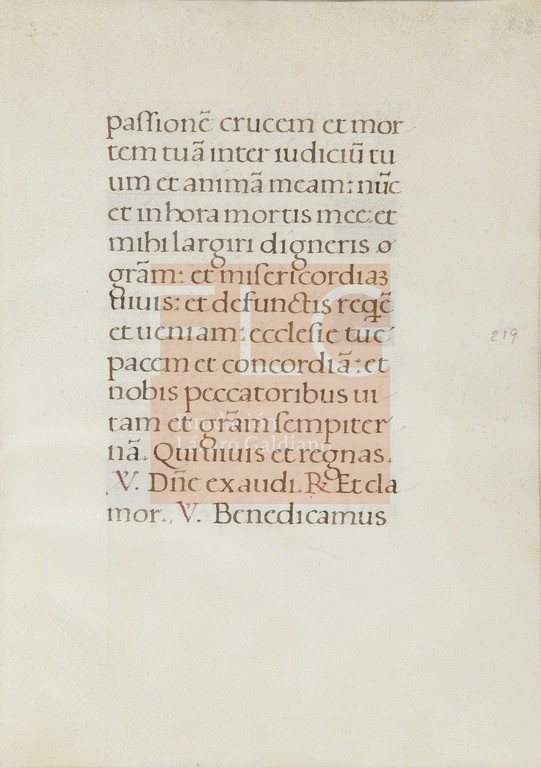 219
passionē crucem et mor
tem tuā inter iudiciū tu
um et animā meam: nūc
et in hora mortis mee: et
mihi largiri digneris
grām: et misericordiaꝫ
uiuis: et defunctis reqē
et ueniam: ecclesie tue
pacem et concordiā: et
nobis peccatoribus ui
tam et grām sempiter
nā. Qui uiuis et regnas.
V. Dn̄e exaudi. R̷ Et cla
mor. V. Benedicamus
FLG
Fundación
Lázaro Galdiano